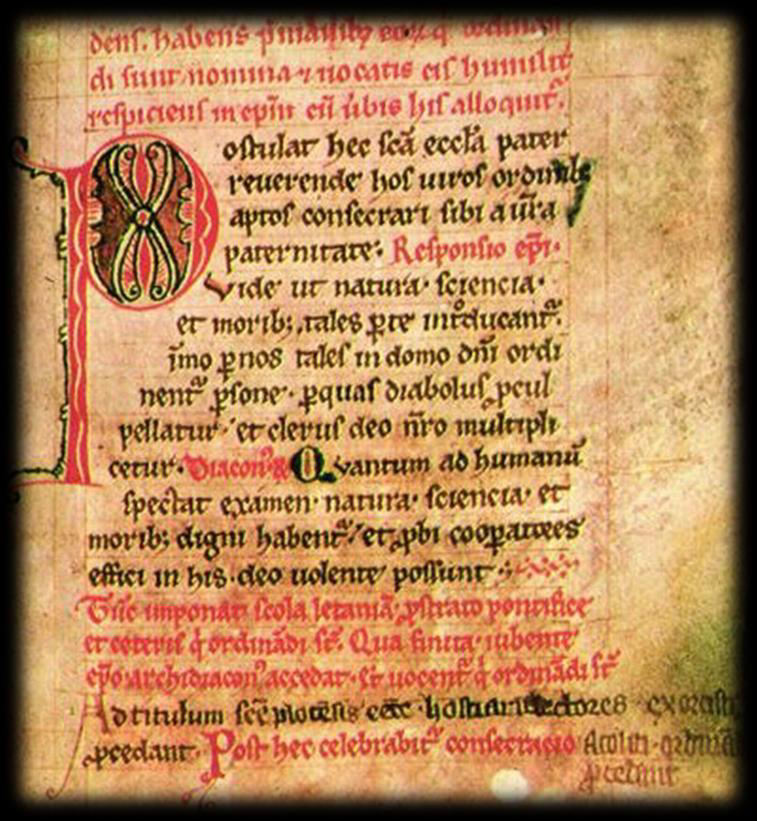 dens. habens
di sunt nomina ⁊ uocatis eis humilit᷑
respiciens in ep̄m cū ūbis his alloquit᷑.
Postulat hec sc̄a eccl̄a pater
reuerende hos uiros ordinib;
aptos consecrari sibi a ūra
paternitate. Responsio ep̄i.
Vide ut natura. sciencia.
et morib; tales ꝑ te introducant᷑.
īmo ꝑ nos tales in domo dn̄i ordi
nent᷑ ꝑsone. ꝑ quas diabolus ꝓcul
pellatur. et clerus deo nr̄o multipli
cetur. Diacon᷒ Quantum ad humanū
spectat examen. natura. sciencia. et
morib; digni habent᷑. et ꝓbi cooꝑatores
effici in his. deo uolente possunt.
Tūc imponat scola letaniā. ꝓstrato pontifice
et ceteris q̇ ordinādi st̄. Qua finita. iubente
ep̄o. archidiacon᷒ accedat. Et uocent᷑ q̇ ordinādi st̄
Ad titulum sc̄e hostiarii lectores exorcist
ꝓcedant. Post hec celebrabit᷑ consecracio Acoliti. ordinād
ꝓcedant